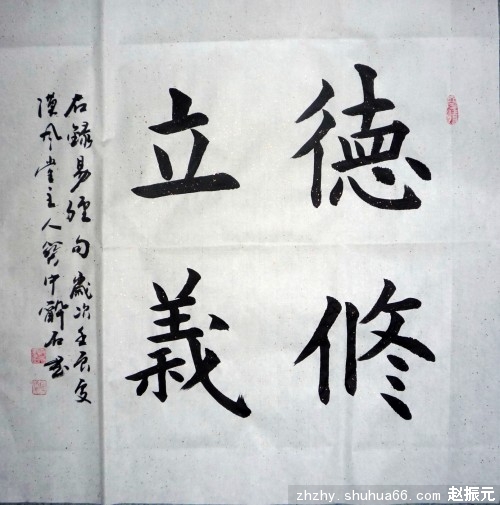 德修
立義
右錄易經句歲次壬辰夏
漢風堂主人中醉石
zhzhy.shuhua66.com 赵振元